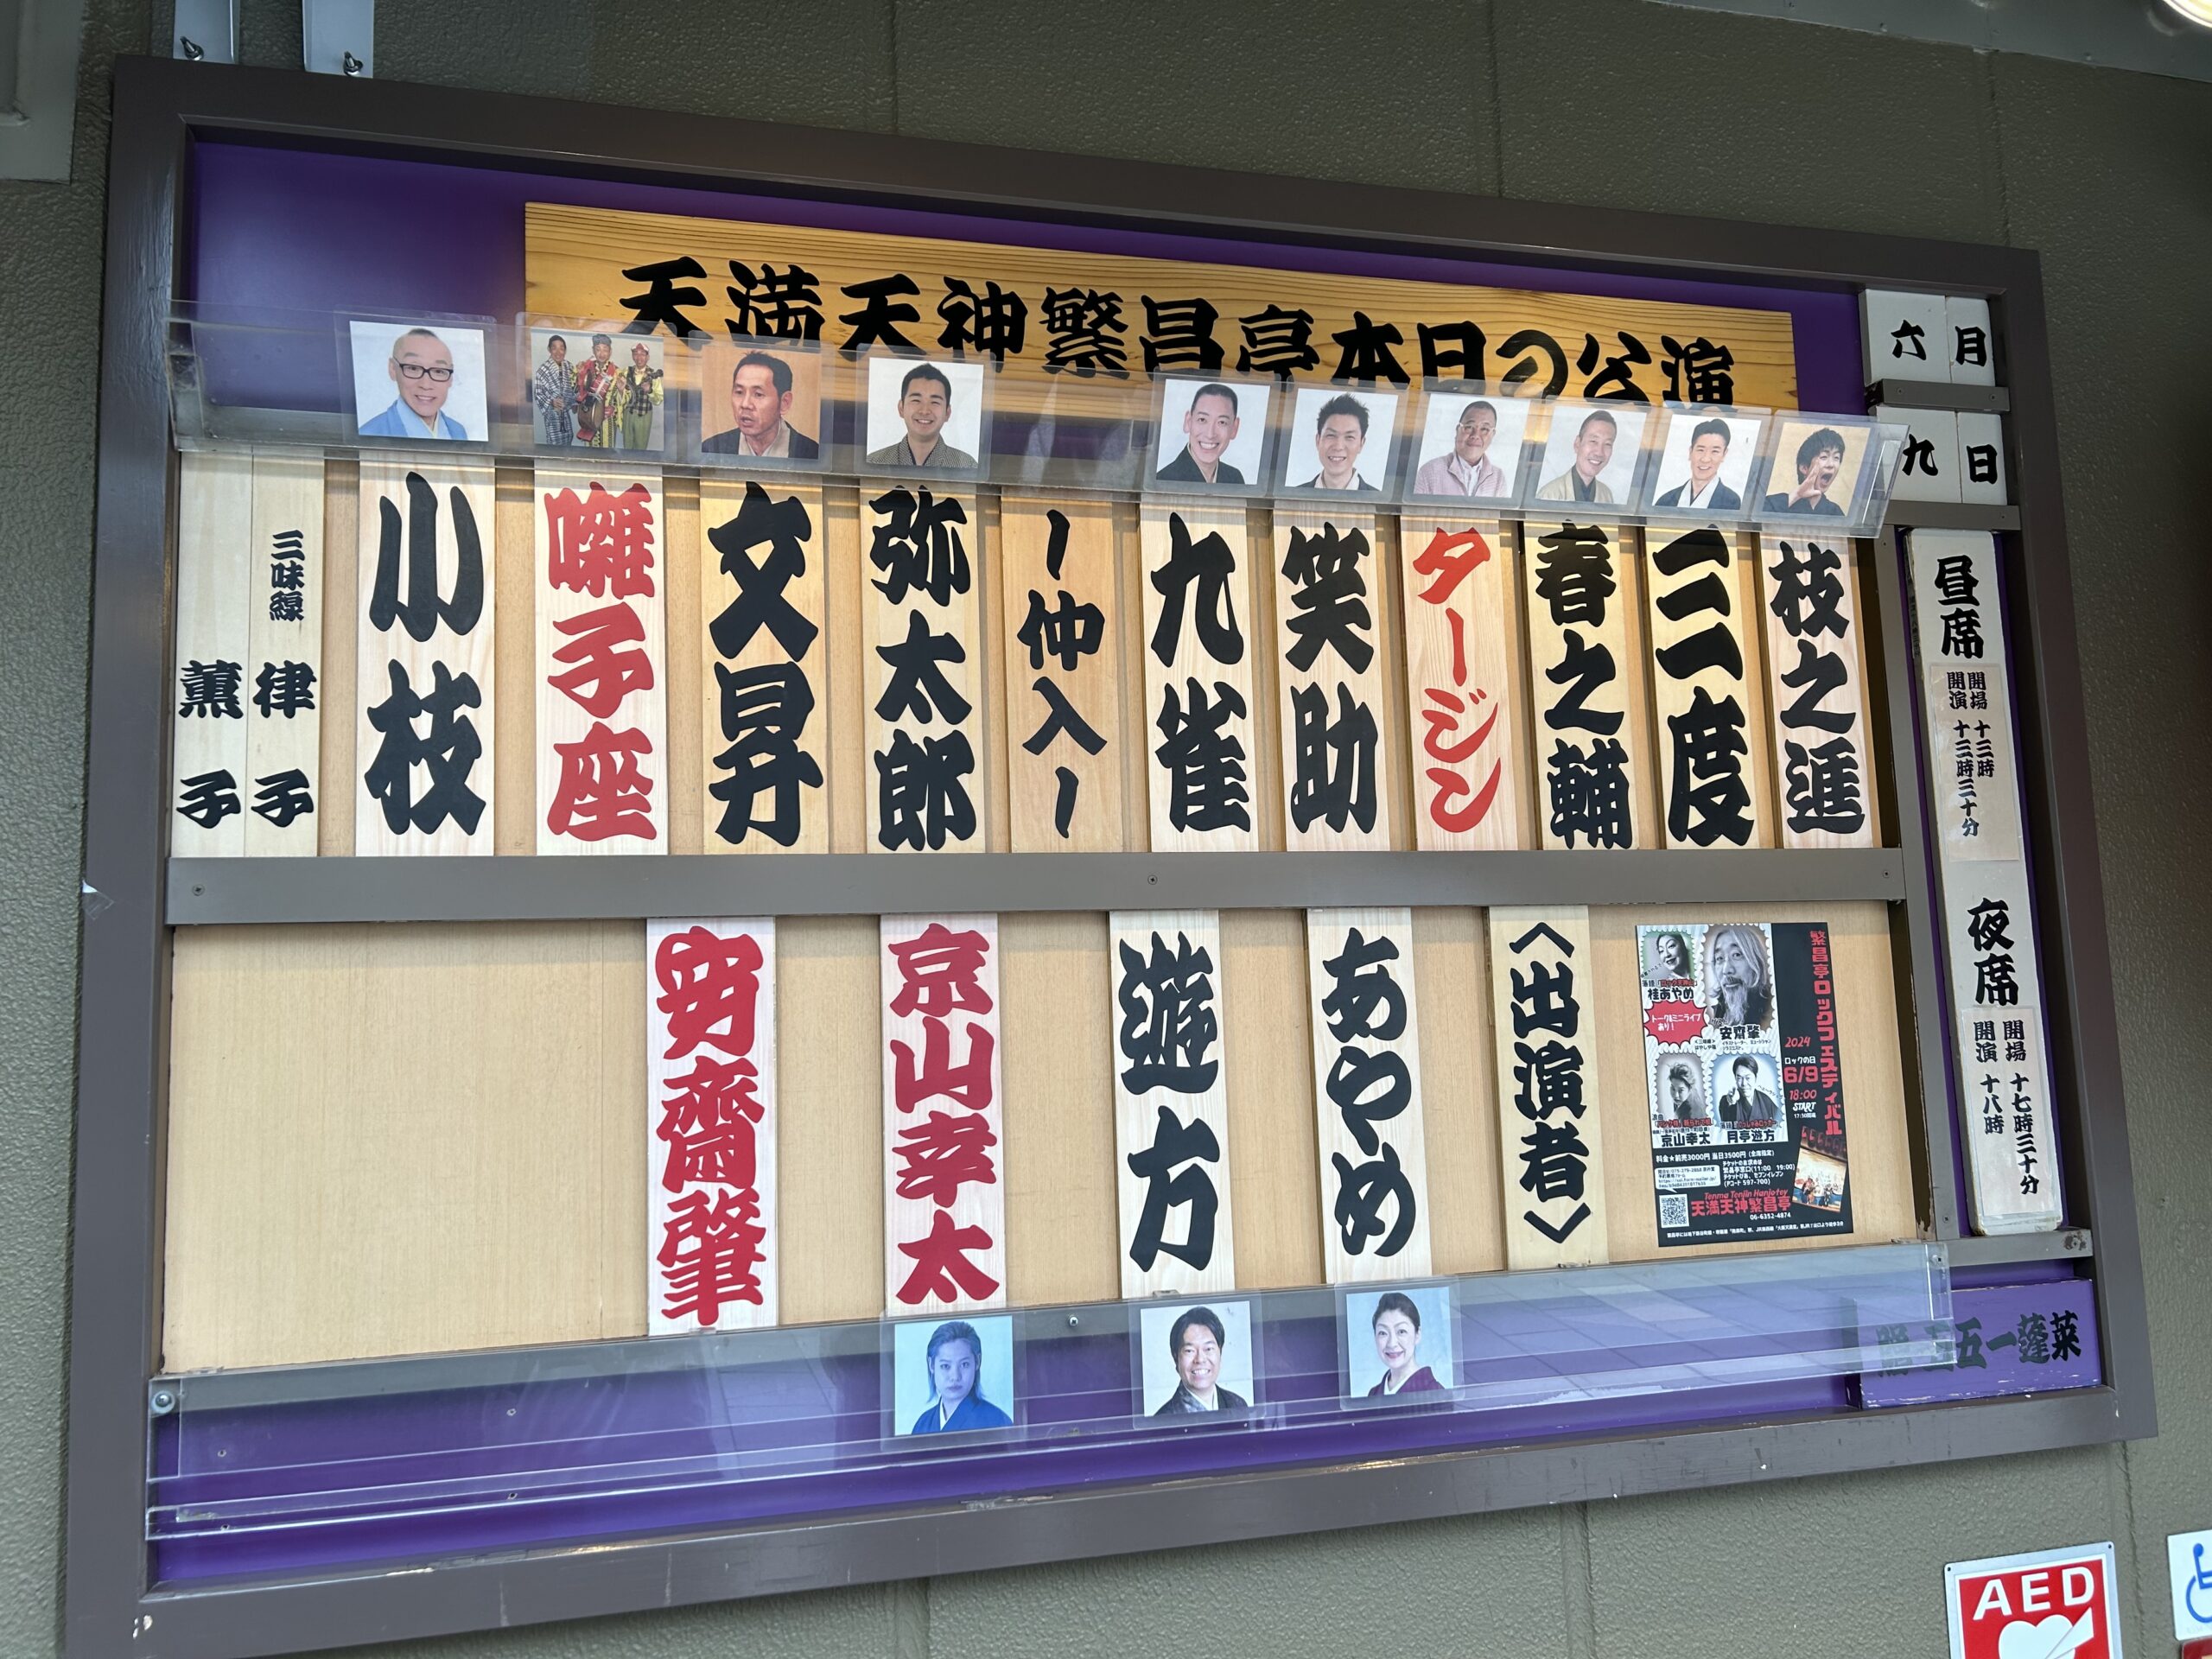 天満天神繁昌亭本日の公演
六月
九日
昼席
開場 十三時
開演 十三時三十分
夜席
開場 十七時三十分
開演 十八時
枝之進
三度
春之輔
タージン
笑助
九雀
〜仲入〜
弥太郎
文昇
囃子座
小枝
三味線 律子
薫子
〈出演者〉
あやめ
遊方
京山幸太
安齋肇
繁昌亭ロックフェスティバル
2024
ロックの日
6/9
18:00
START
桂あやめ
トーク&ミニライブあり!
安齋肇
京山幸太
月亭遊方
料金★前売3000円 当日3500円(全席指定)
Tenma Tenjin Hanjotey
天満天神繁昌亭
06-6352-4874
五一蓬莱
AED